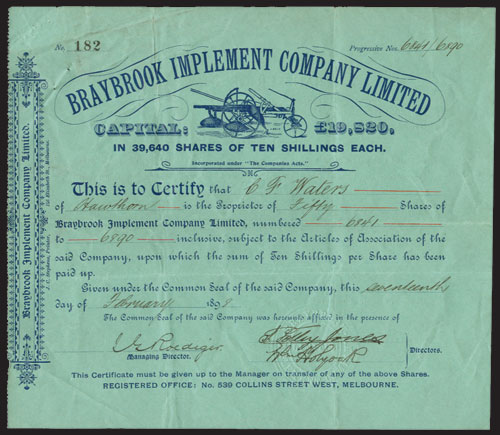 No. 182
Progressive Nos. 6841/6890
BRAYBROOK IMPLEMENT COMPANY LIMITED
CAPITAL: £19,820,
IN 39,640 SHARES OF TEN SHILLINGS EACH.
Incorporated under "The Companies Acts."
This is to Certify that C F Waters
of Hawthorn is the Proprietor of Fifty Shares of
Braybrook Implement Company Limited, numbered 6841
to 6890 inclusive, subject to the Articles of Association of the
said Company, upon which the sum of Ten Shillings per Share has been
paid up.
Given under the Common Seal of the said Company, this seventeenth
day of February 1898
The Common Seal of the said Company was hereunto affixed in the presence of
Managing Director.
Wm Holyock
Directors.
This Certificate must be given up to the Manager on transfer of any of the above Shares.
REGISTERED OFFICE: No. 539 COLLINS STREET WEST, MELBOURNE.
Braybrook Implement Company Limited.